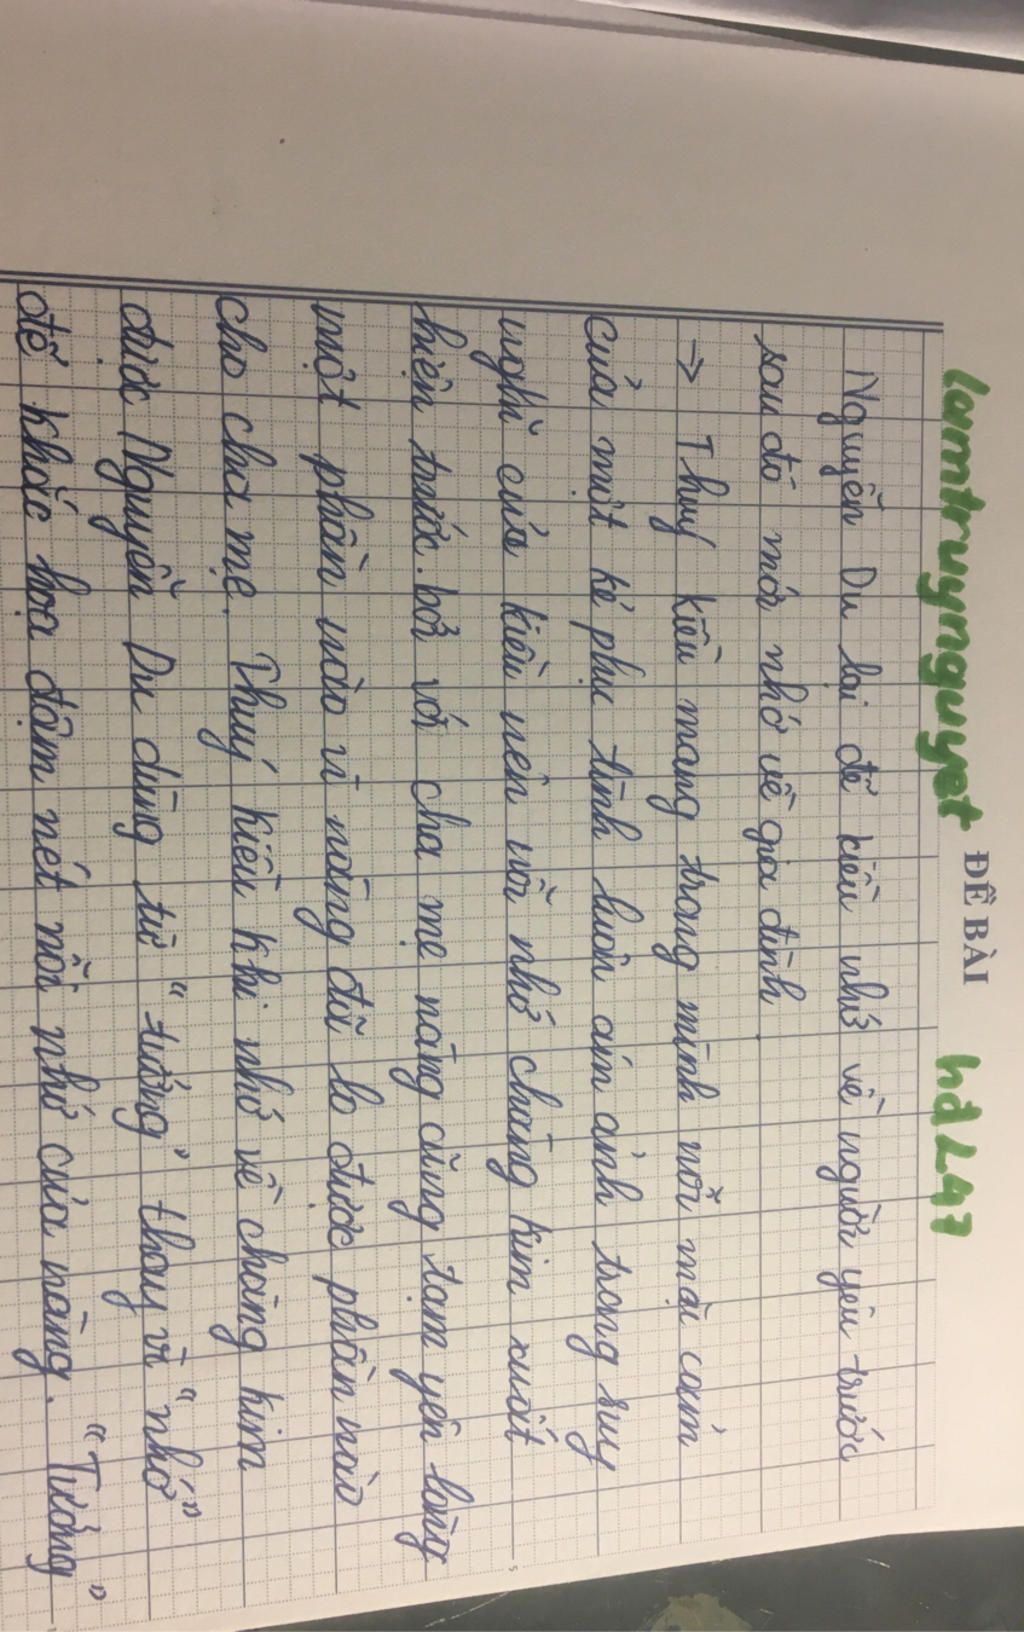 lamtruynguyet ĐỀ BÀI hd L47
Nguyễn Du lại để kiều nhớ về người yêu trước
sau đó mới nhớ về gia đình
→ Thuý kiều mang trong mình nỗi mặc cảm
của một kẻ phụ tình luôn ám ảnh trong suy
nghĩ của kiều nên nỗi nhớ chàng kim xuất
hiện trước. bởi với cha mẹ nàng cũng tạm yên lòng
một phần nào vì nàng đã lo được phần nào
cho cha mẹ. Thuý kiều khi nhớ về chàng kim
được Nguyễn Du dùng từ "tưởng" thay vì "nhớ"
để khắc họa đậm nét nỗi nhớ của nàng. "Tưởng"